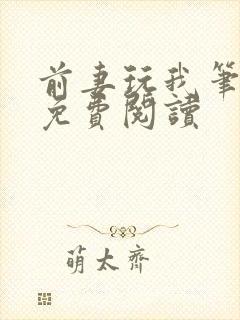 前妻玩我筆
免費閱讀
萌太齊